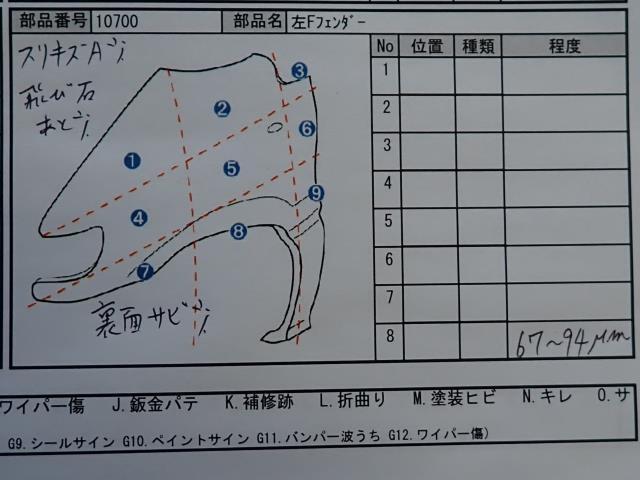 部品番号 10700 部品名 左Fﾌｪﾝﾀﾞｰ
No 位置 種類 程度
スリキズA
飛び石
あと
1
2
3
4
5
6
7
8 67~94μm
③
②
⑥
①
⑤
⑨
④
⑧
⑦
裏面サビ
ワイパー傷 J.鈑金パテ K.補修跡 L.折曲り M.塗装ヒビ N.キレ O.サ
G9.シールサイン G10.ペイントサイン G11.バンパー波うち G12.ワイパー傷)